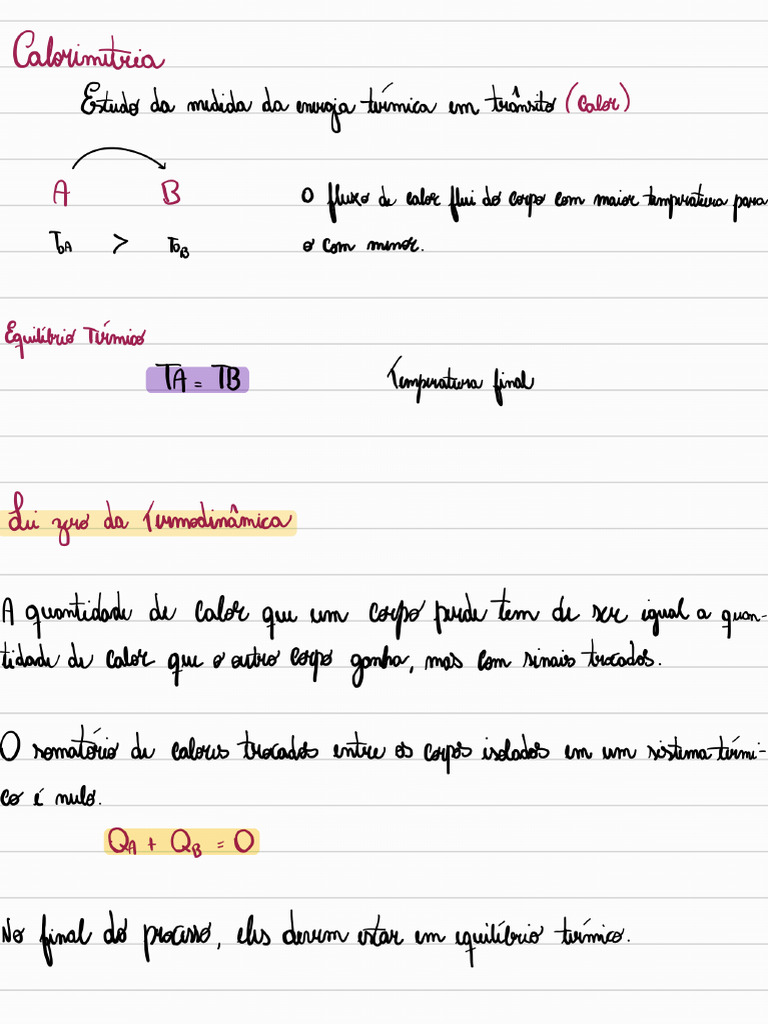 Calorimetria
Estudo da medida da energia térmica em trânsito (Calor)
A B
O fluxo de calor flui do corpo com maior temperatura para
T0A > T0B
o com menor.
Equilíbrio Térmico
TA = TB
Temperatura final
Lei zero da Termodinâmica
A quantidade de calor que um corpo perde tem de ser igual a quan-
tidade de calor que o outro corpo ganha, mas com sinais trocados.
O somatório de calores trocados entre os corpos isolados em um sistema térmi-
co é nulo.
QA + QB = 0
No final do processo, eles devem estar em equilíbrio térmico.